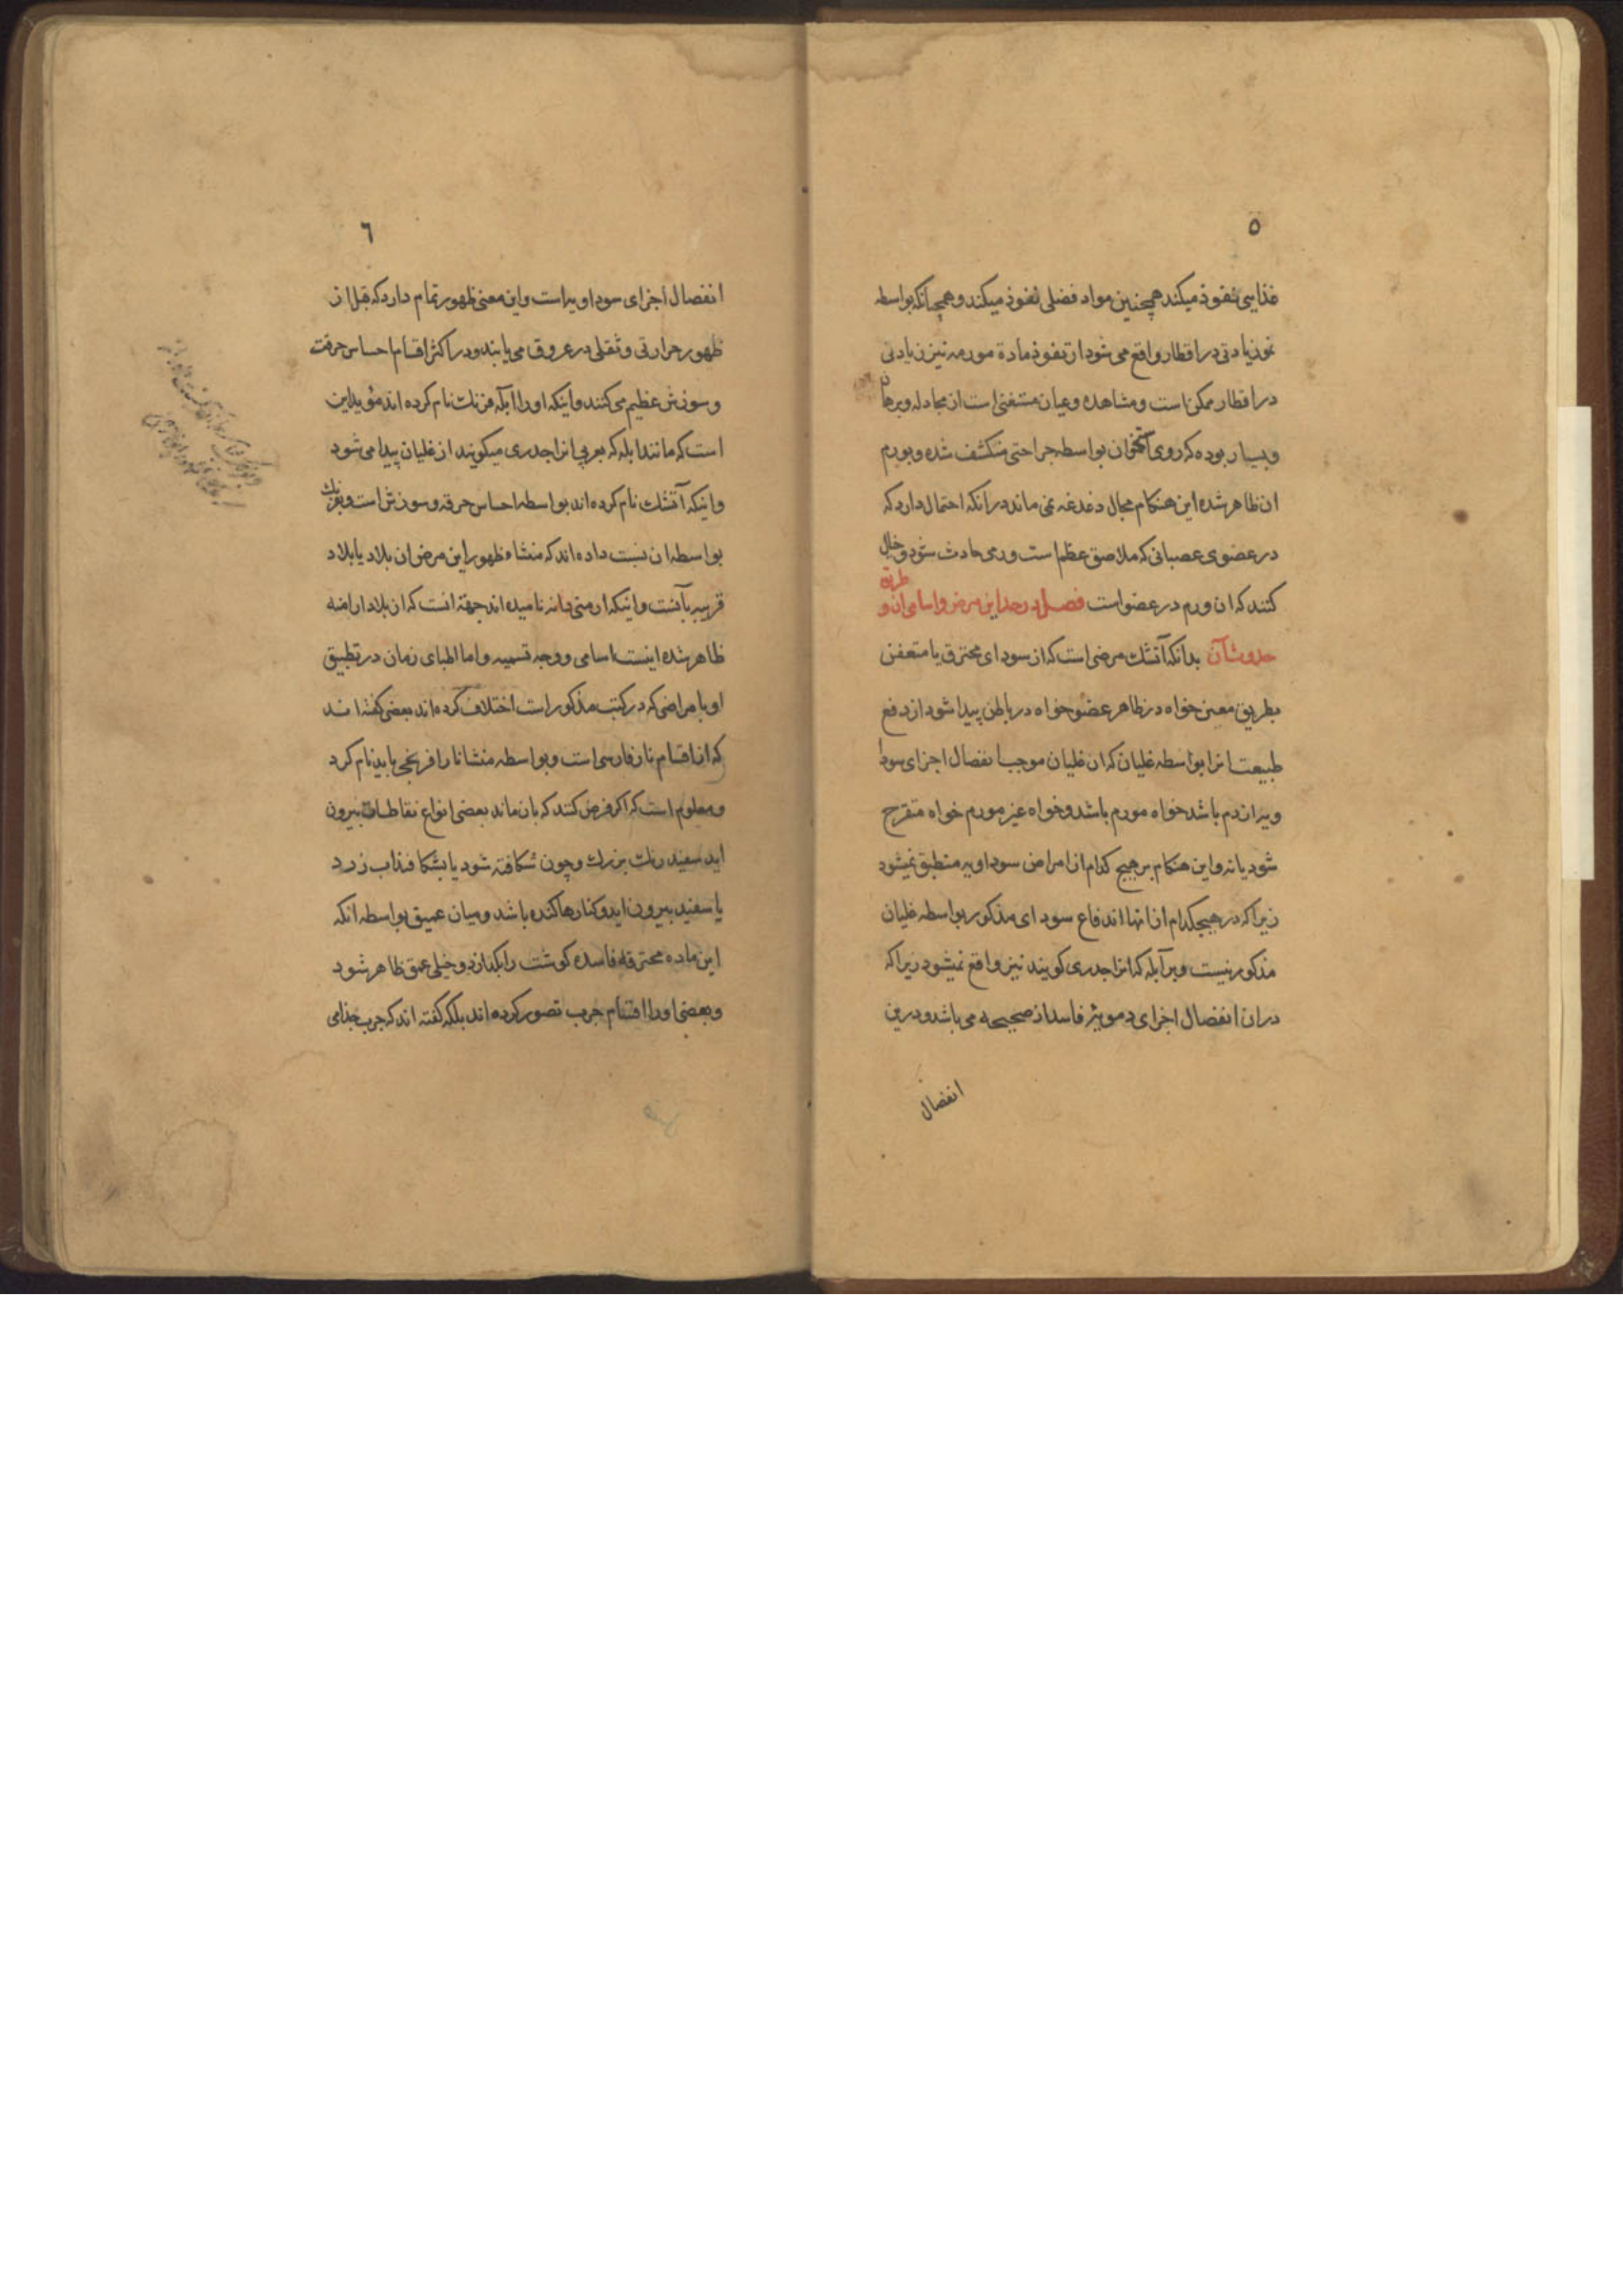 ٥
غذایی نفوذ میکند همچنین مواد فضلی نفوذ میکند و همچنانکه بواسطه
نمو زیادتی در اقطار واقع می شود از نفوذ مادة مورمه نیز زیادتی
در اقطار ممکن است و مشاهده و عیان مستغنی است از مجادله و برهان
و بسیار بوده که روی استخوان بواسطه جراحتی منکشف شده و بورم
ان ظاهر شده این هنکام مجال دغدغه نمی ماند در انکه احتمال دارد که
در عضوی عصبانی که ملاصق عظم است ورمی حادث شود و خیال
کنند که ان ورم در عضو است فصل در حد این مرض و اسامی ان و طریق
حدوث آن بدانکه آتشك مرضی است که از سودای محترق یا متعفن
بطریق معین خواه در ظاهر عضو خواه در باطن پیدا شود از دفع
طبیعت انرا بواسطه غلیان که ان غلیان موجب انفصال اجزای سودا
ویه از دم باشد خواه مورم باشد و خواه غیر مورم خواه متقرح
شود یا نه و این هنکام بر هیچ کدام از امراض سوداویه منطبق نمیشود
زیرا که در هیچکدام از انها اندفاع سودای مذکور بواسطه غلیان
مذکور نیست و بر آبله که انرا جدری کویند نیز واقع نمیشود زیرا که
در ان انفصال اجزای دمویه فاسد از صحیحه می باشد و درین
انفصال
٦
انفصال اجزای سوداویه است و این معنی ظهور تمام دارد که قبل از
ظهور حرارتی و ثقلی در عروق می یابند و در اکثر اقسام احساس حرقت
و سوزش عظیم می کنند و اینکه او را ابله فرنك نام کرده اند مؤید این
است که مانند ابله که بعربی انرا جدری میکویند از غلیان پیدا می شود
و اینکه آتشك نام کرده اند بواسطه احساس حرقه و سوزش است و بفرنك
بواسطه ان نسبت داده اند که منشاء ظهور این مرض ان بلاد یا بلاد
قریبه بآنست و اینکه ارمنی دانه نامیده اند جهة انست که ان بلاد ارامنه
ظاهر شده اینست اسامی و وجه تسمیه و اما اطبای زمان در تطبیق
او با مراضی که در کتب مذکور است اختلاف کرده اند بعضی کفته اند
که از اقسام نار فارسی است و بواسطه منشا نار افرنجی باید نام کرد
و معلوم است که اکر فرض کنند که بان ماند بعضی انواع نفاطات بیرون
اید سفید رنك بزرك و چون شکافته شود یا بشکافند اب زرد
یا سفید بیرون اید و کنارها کنده باشد و میان عمیق بواسطه انکه
این ماده محترقه فاسده کوشت را بکدازد و خیلی عمق ظاهر شود
و بعضی او را از اقسام جرب تصور کرده اند بلکه کفته اند که جرب جذامی